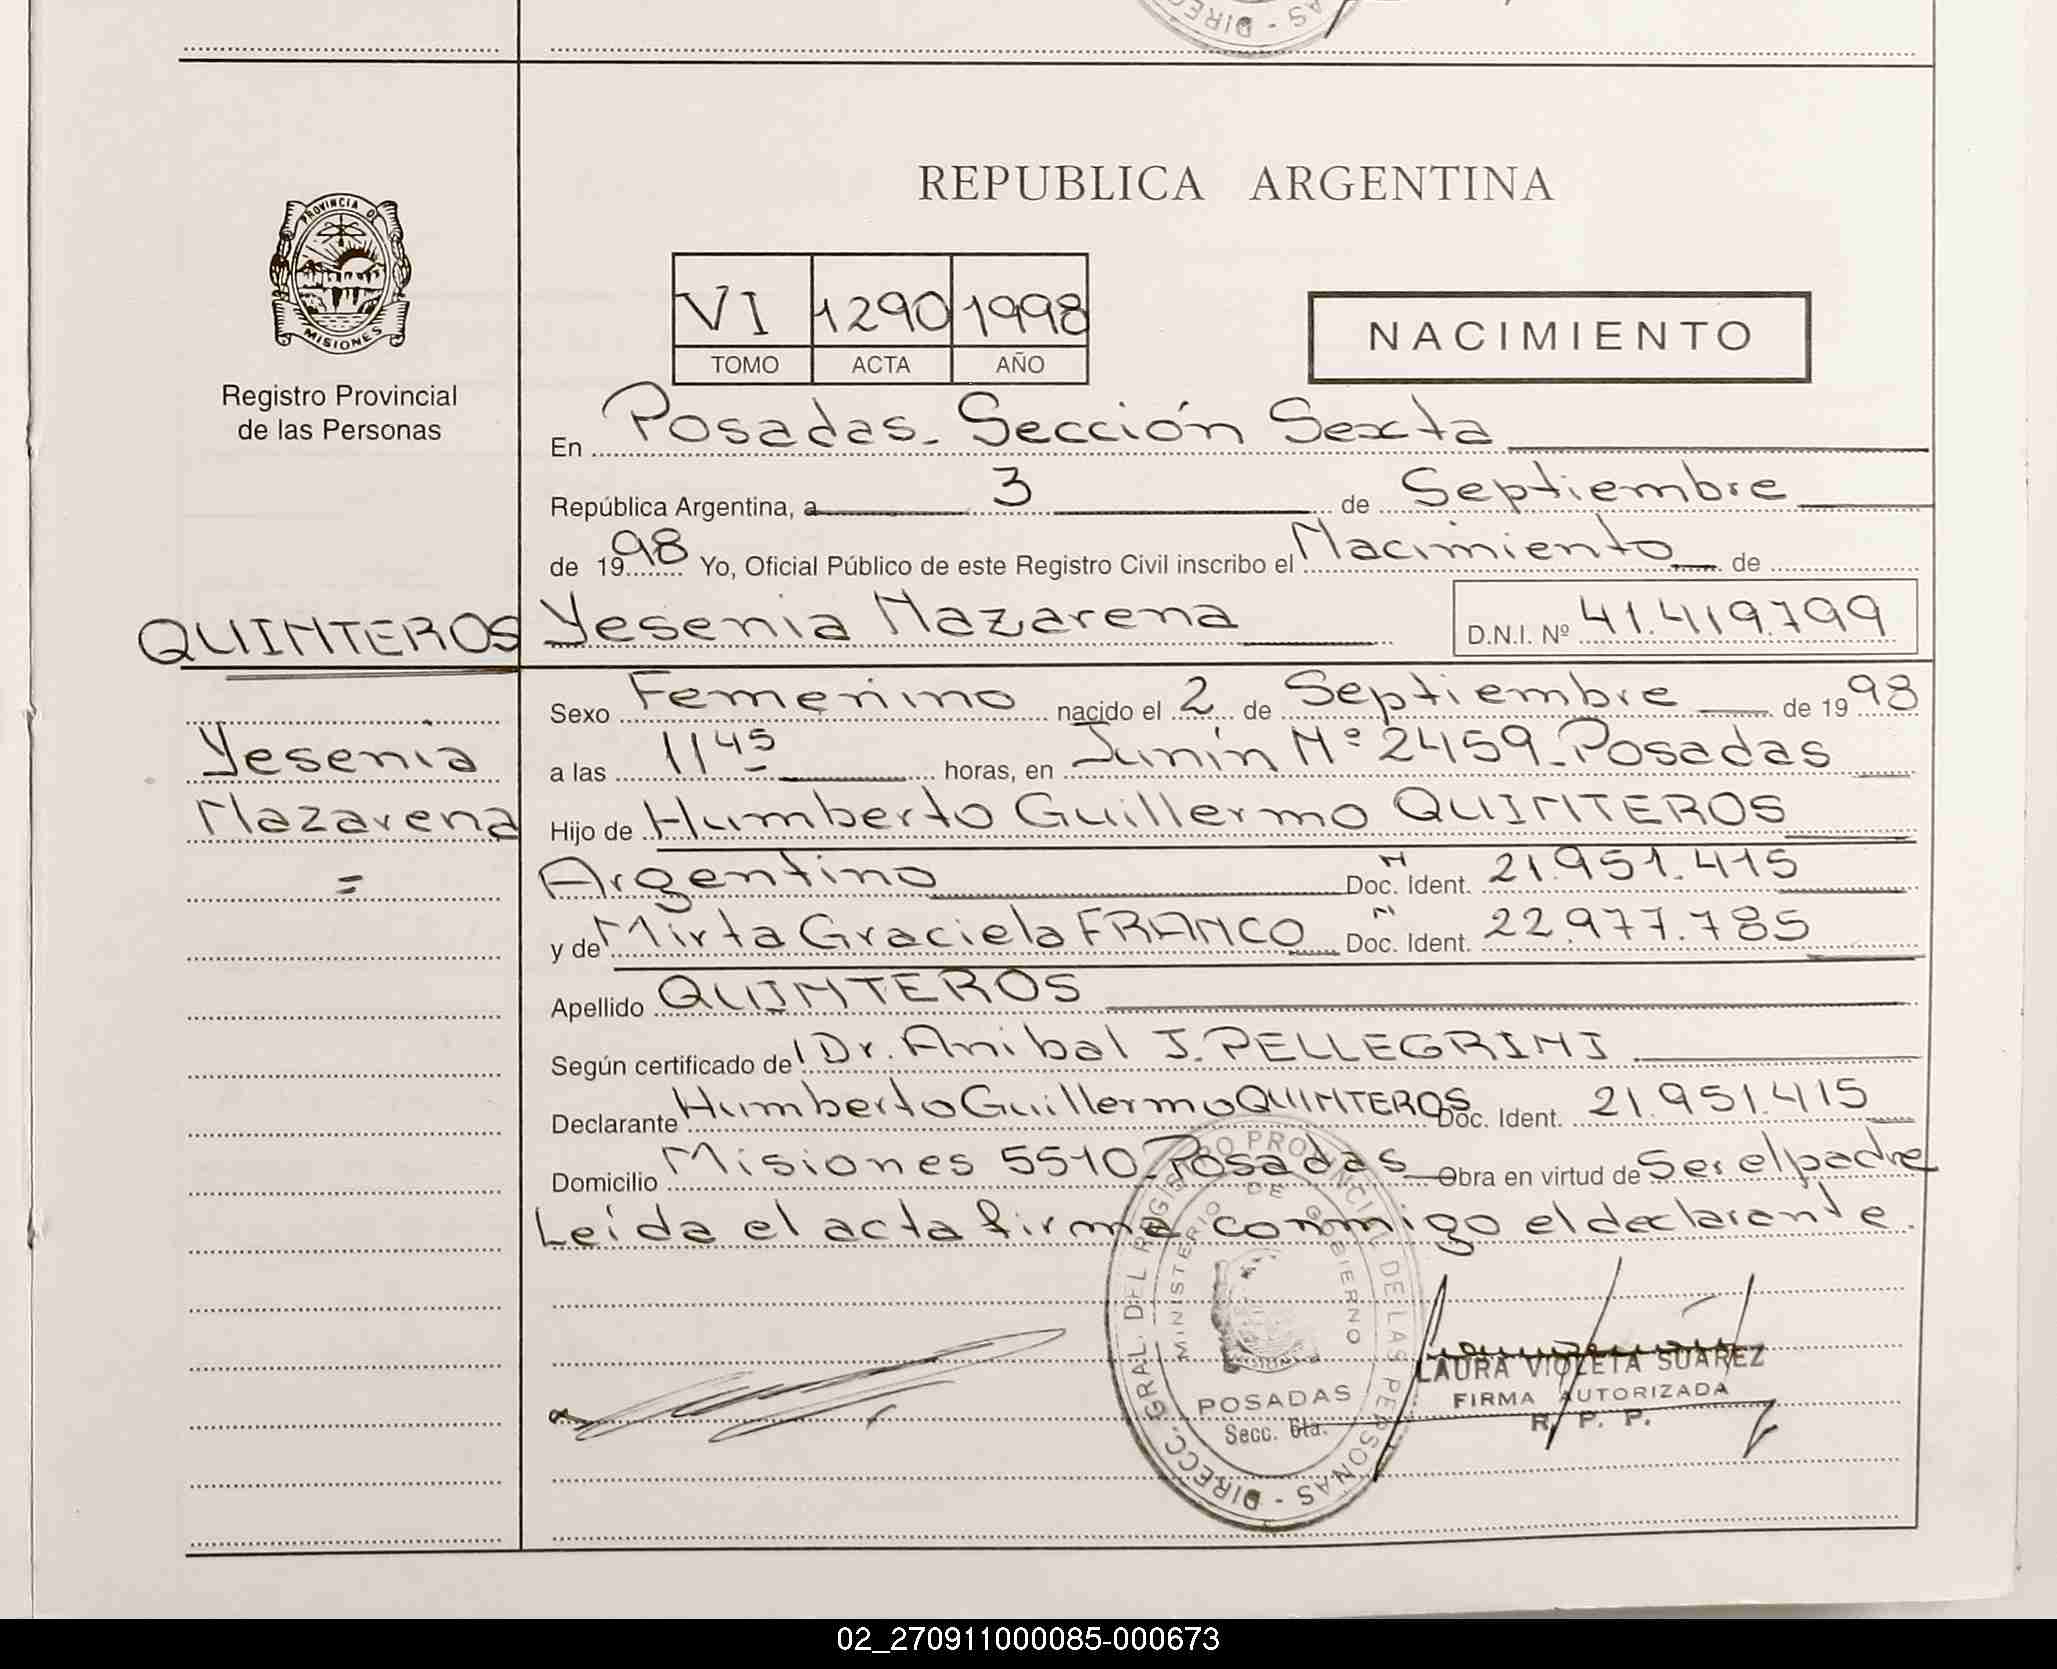 REPUBLICA ARGENTINA
PROVINCIA DE
MISIONES
Registro Provincial
de las Personas
VI 1290 1998
TOMO ACTA AÑO
NACIMIENTO
En Posadas. Sección Sexta
República Argentina, a 3 de Septiembre
de 1998 Yo, Oficial Público de este Registro Civil inscribo el Nacimiento de
QUINTEROS Yesenia Nazarena D.N.I. Nº 41.419.799
Sexo Femenino nacido el 2 de Septiembre de 1998
Yesenia
a las 11 45 horas, en Junín Nº 2459_Posadas
Nazarena
Hijo de Humberto Guillermo QUINTEROS
=
Argentino Doc. N Ident. 21.951.415
y de Mirta Graciela FRANCO Doc. N Ident. 22.977.785
Apellido QUINTEROS
Según certificado del Dr. Anibal J. PELLEGRINI
Declarante Humberto Guillermo QUINTEROS Doc. Ident. 21.951.415
Domicilio Misiones 5510_Posadas Obra en virtud de Ser el padre
Leída el acta firma conmigo el declarante.
DIRECC. GRAL. DEL REGISTRO PROVINCIAL DE LAS PERSONAS -
MINISTERIO DE GOBIERNO
POSADAS
Secc. 6ta.
LAURA VIOLETA SUAREZ
FIRMA AUTORIZADA
R. P. P.
02_270911000085-000673